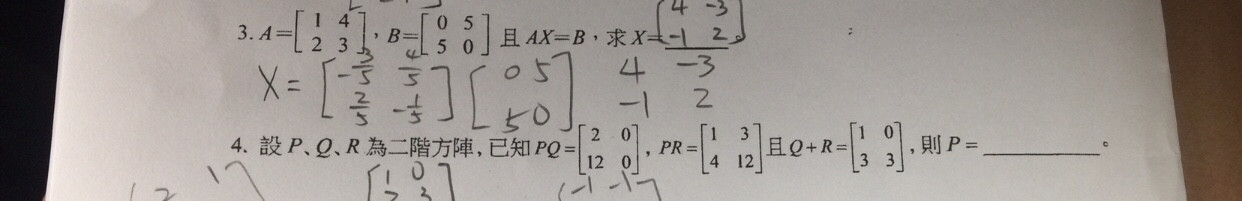 3. A=[1 4 2 3], B=[0 5 5 0] 且 AX=B,求 X=[4 -3 -1 2]。
X = [-3/5 4/5 2/5 -1/5] [0 5 5 0] 4 -3 -1 2
4. 設 P、Q、R 為二階方陣,已知 PQ=[2 0 12 0], PR=[1 3 4 12] 且 Q+R=[1 0 3 3],則 P = ________。
[1 0